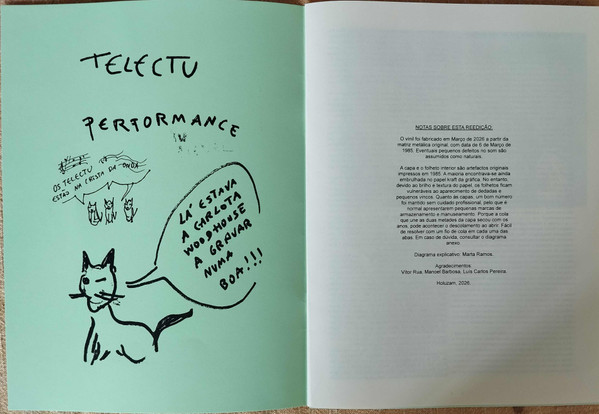 TELECTU
PERFORMANCE
OS TELECTU
ESTÃO NA CRISTA DA ONDA
LÁ ESTAVA
A CARLOTA
WOODHOUSE
A GRAVAR
NUMA
BOA!!!
NOTAS SOBRE ESTA REEDIÇÃO:
O vinil foi fabricado em Março de 2026 a partir da
matriz metálica original, com data de 6 de Março de
1985. Eventuais pequenos defeitos no som são
assumidos como naturais.
A capa e o folheto interior são artefactos originais
impressos em 1985. A maioria encontrava-se ainda
embrulhada no papel kraft da gráfica. No entanto,
devido ao brilho e textura do papel, os folhetos ficam
vulneráveis ao aparecimento de dedadas e
pequenos vincos. Quanto às capas, um bom número
foi mantido sem cuidado profissional, pelo que é
normal apresentarem pequenas marcas de
armazenamento e manuseamento. Porque a cola
que une as duas metades da capa secou com os
anos, pode acontecer o descolamento ao abrir. Fácil
de resolver com um fio de cola em cada uma das
abas. Em caso de dúvida, consultar o diagrama
anexo.
Diagrama explicativo: Marta Ramos.
Agradecimentos:
Vítor Rua, Manoel Barbosa, Luís Carlos Pereira.
Holuzam, 2026.